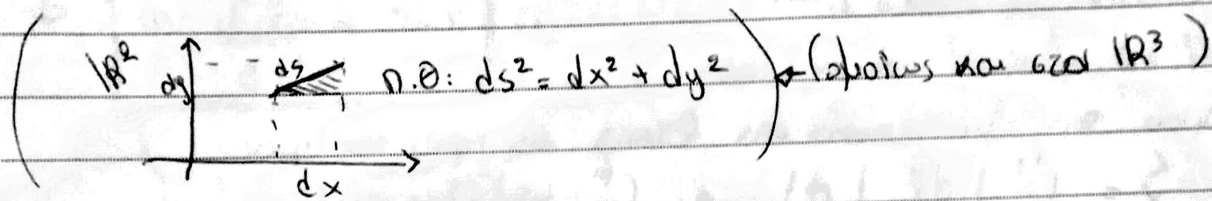 ℝ² dy ds Π.Θ: ds² = dx² + dy² (ομοίως και στον ℝ³)
dx